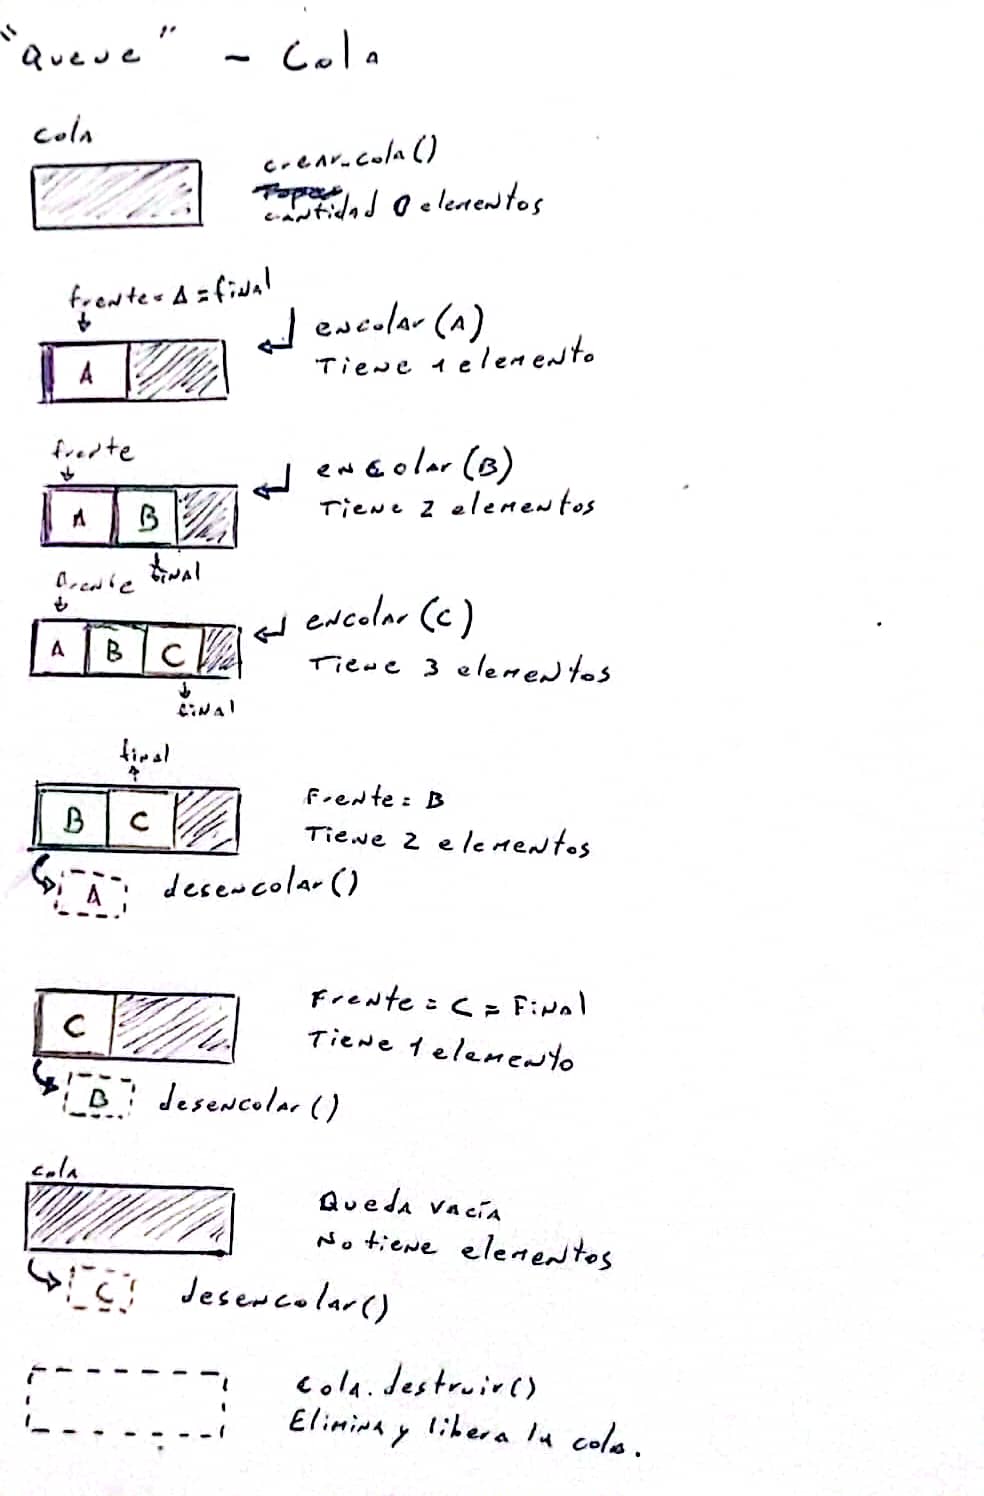 "Queue" - Cola
cola
crear_cola()
cantidad 0 elementos
frente = A = final
A
encolar(A)
Tiene 1 elemento
frente
A B
encolar(B)
Tiene 2 elementos
final
frente
A B C
encolar(C)
Tiene 3 elementos
final
final
B C
Frente = B
Tiene 2 elementos
A desencolar()
C
Frente = C = Final
Tiene 1 elemento
B desencolar()
cola
Queda vacía
No tiene elementos
C desencolar()
cola.destruir()
Elimina y libera la cola.